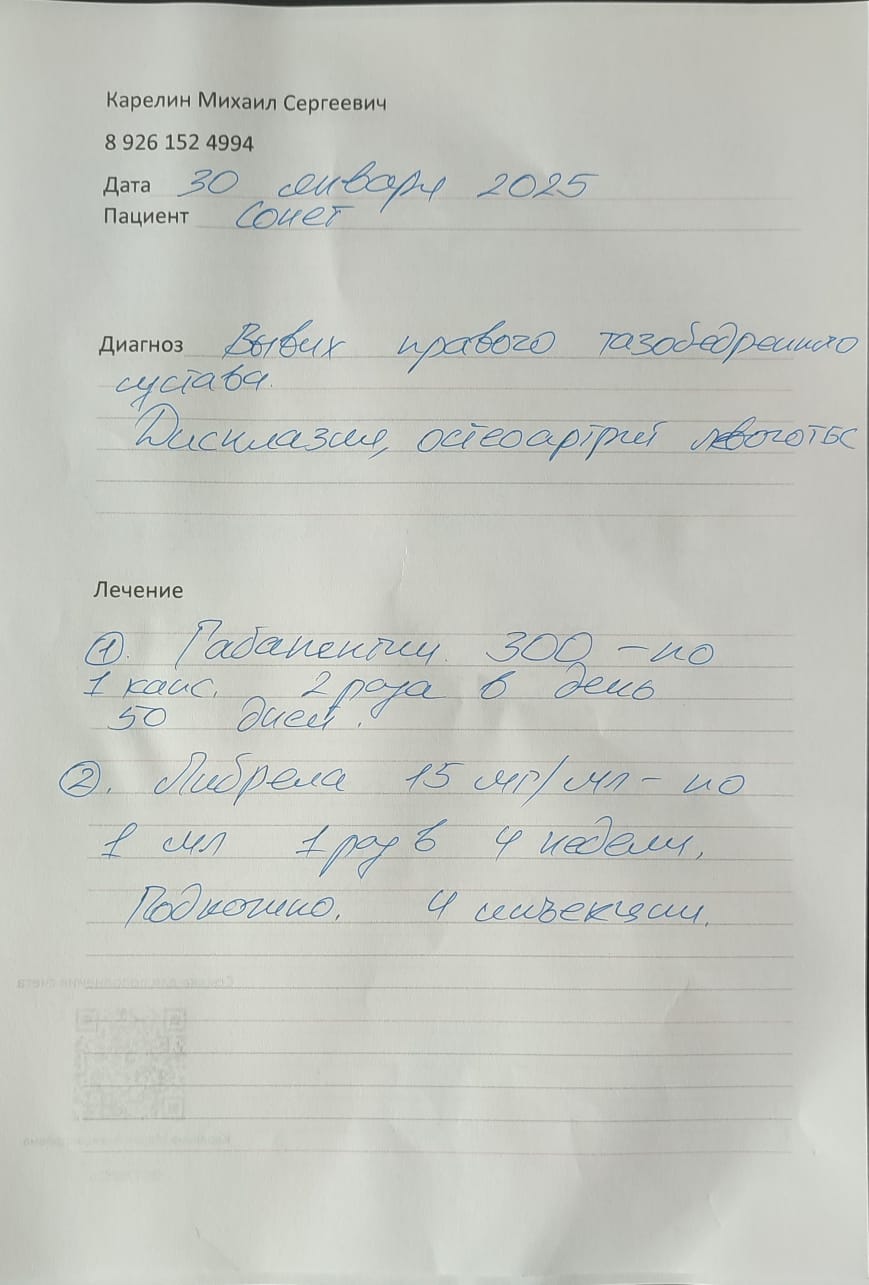 Карелин Михаил Сергеевич
8 926 152 4994
Дата 30 января 2025
Пациент Сонет
Диагноз Вывих правого тазобедренного
сустава.
Дисплазия, остеоартрит левого ТБС
Лечение
①. Габапентин. 300 – по
1 капс. 2 раза в день
50 дней.
②. Либрела 15 мг/мл – по
1 мл 1 раз в 4 недели,
Подкожно. 4 инъекции.